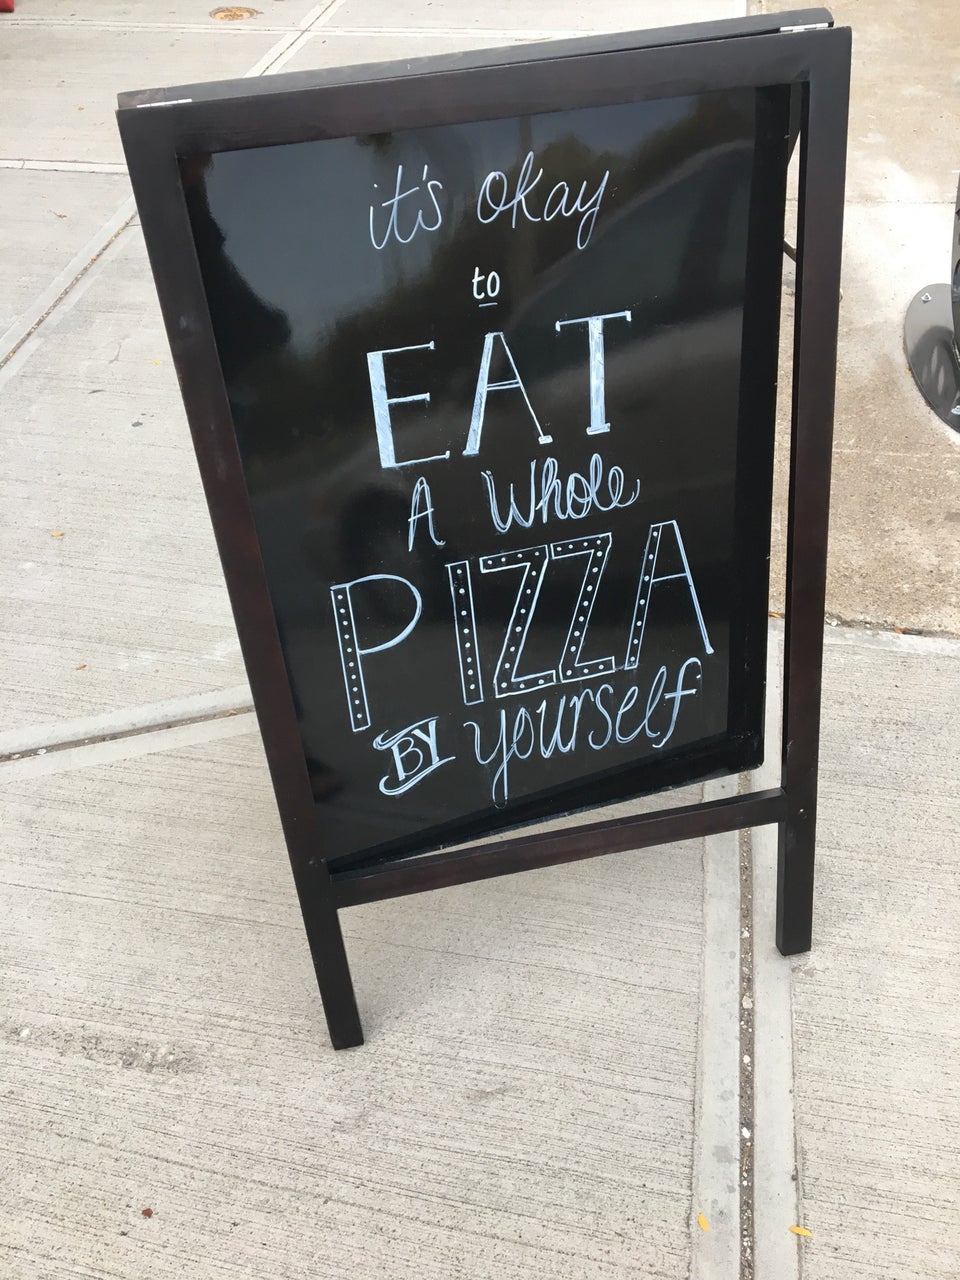 it's okay
to
EAT
A Whole
PIZZA
BY yourself